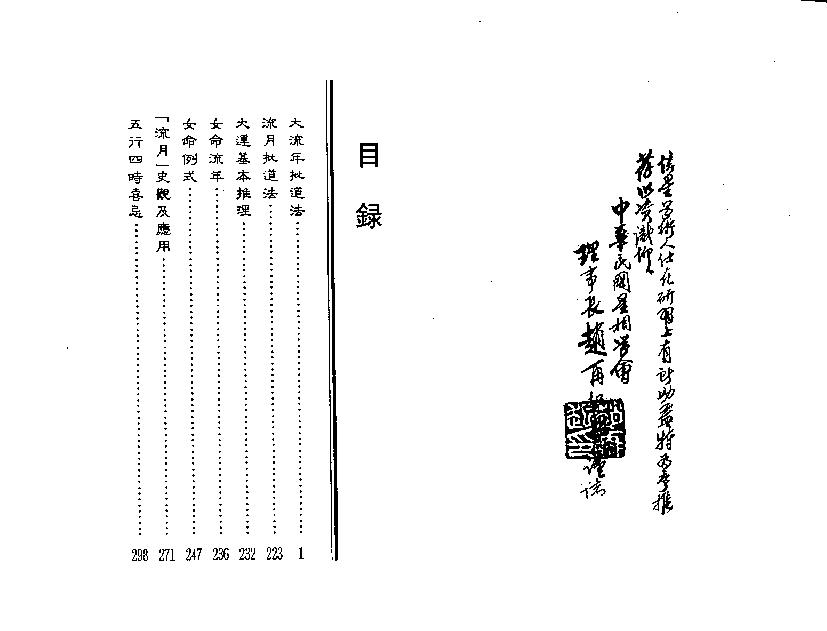 信星學術人仕在研習上有所助益特為序推
荐
中華民國星相學會
理事長趙再
謹誌
目錄
大流年批道法 1
流月批道法 223
大運基本推理 232
女命流年 236
女命例式 247
「流月」史觀及應用 271
五行四時喜忌 298